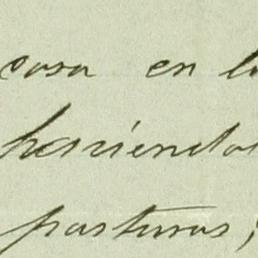 casa en la
haciendo
pasturas,